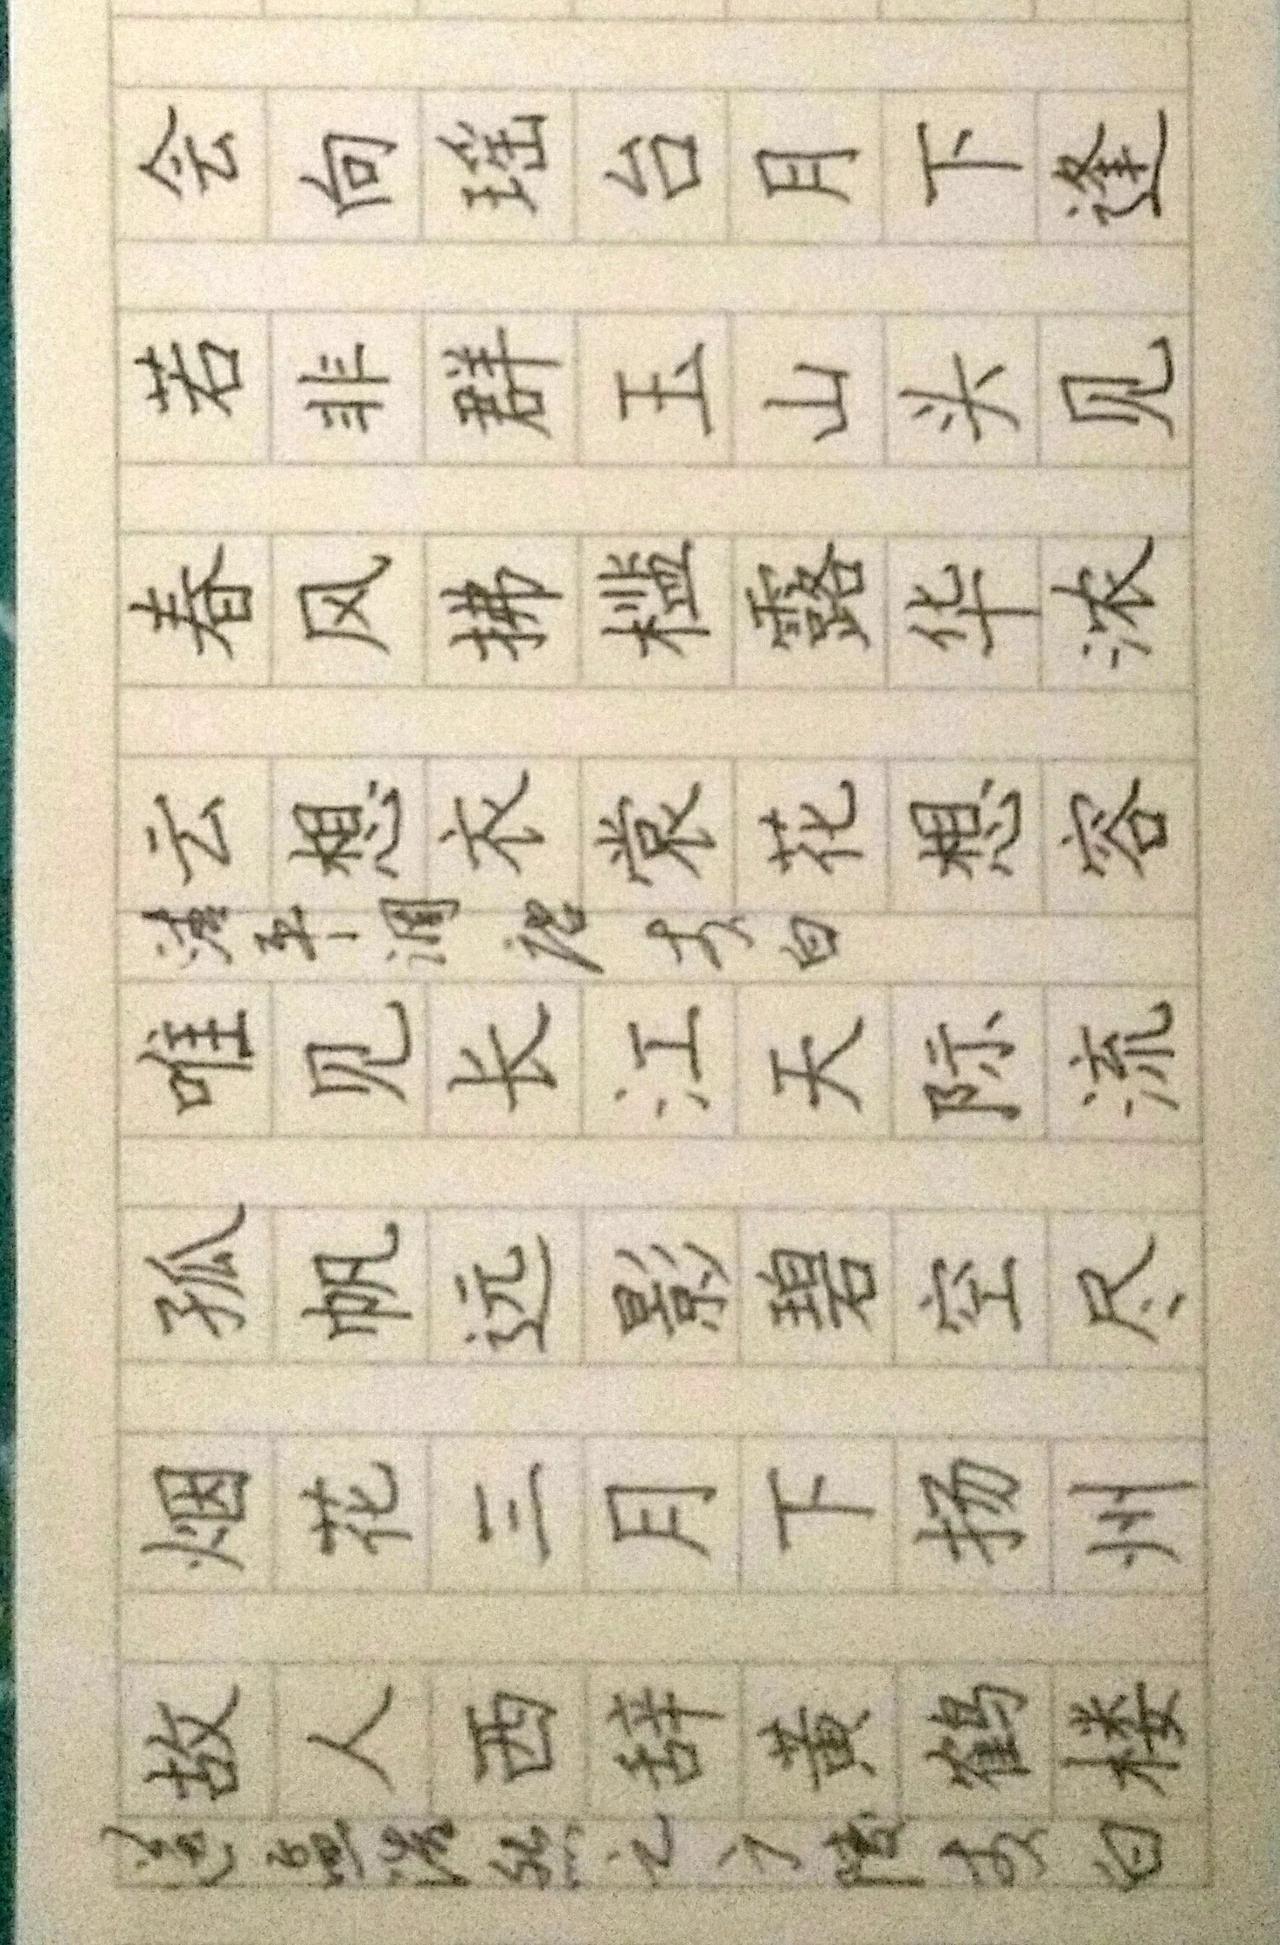 送孟浩然之广陵 李白
故人西辞黄鹤楼
烟花三月下扬州
孤帆远影碧空尽
唯见长江天际流
清平调词 李白
云想衣裳花想容
春风拂槛露华浓
若非群玉山头见
会向瑶台月下逢